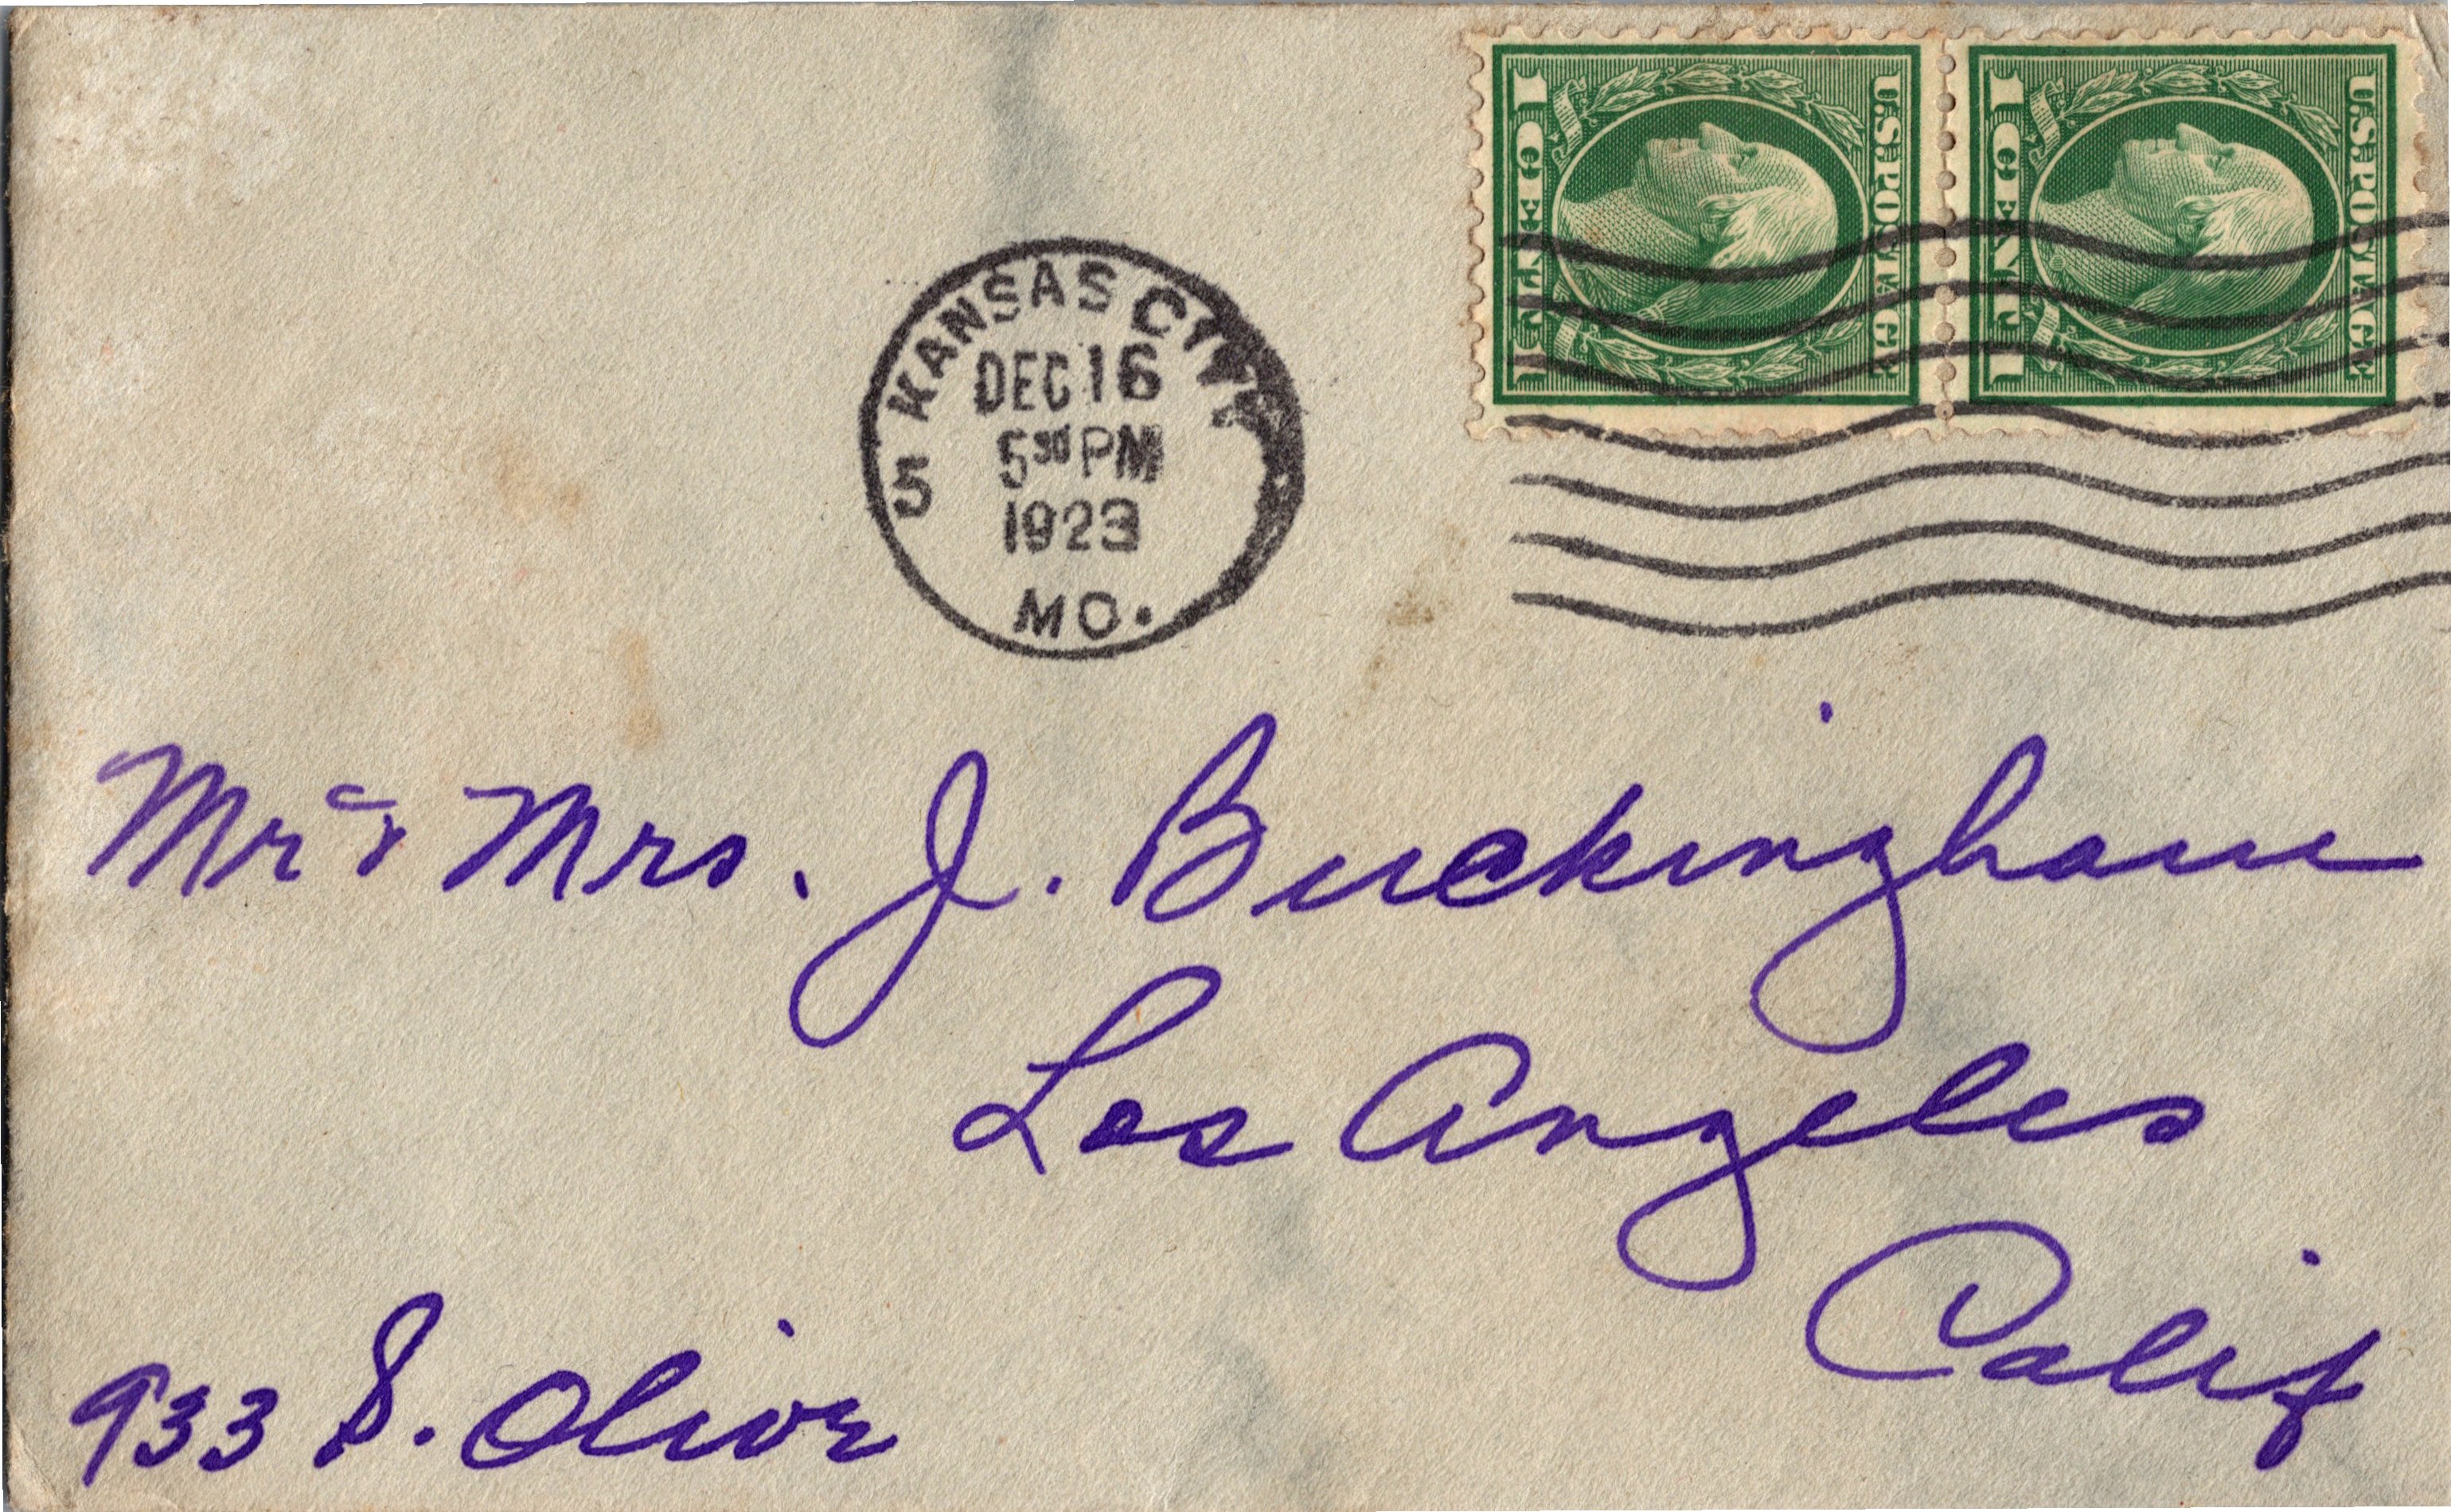 U.S. POSTAGE
1 CENT 1
U.S. POSTAGE
1 CENT 1
5 KANSAS CITY
DEC 16
5 30 PM
1923
MO.
Mr & Mrs. J. Buckingham
Los Angeles
Calif
933 S. Olive